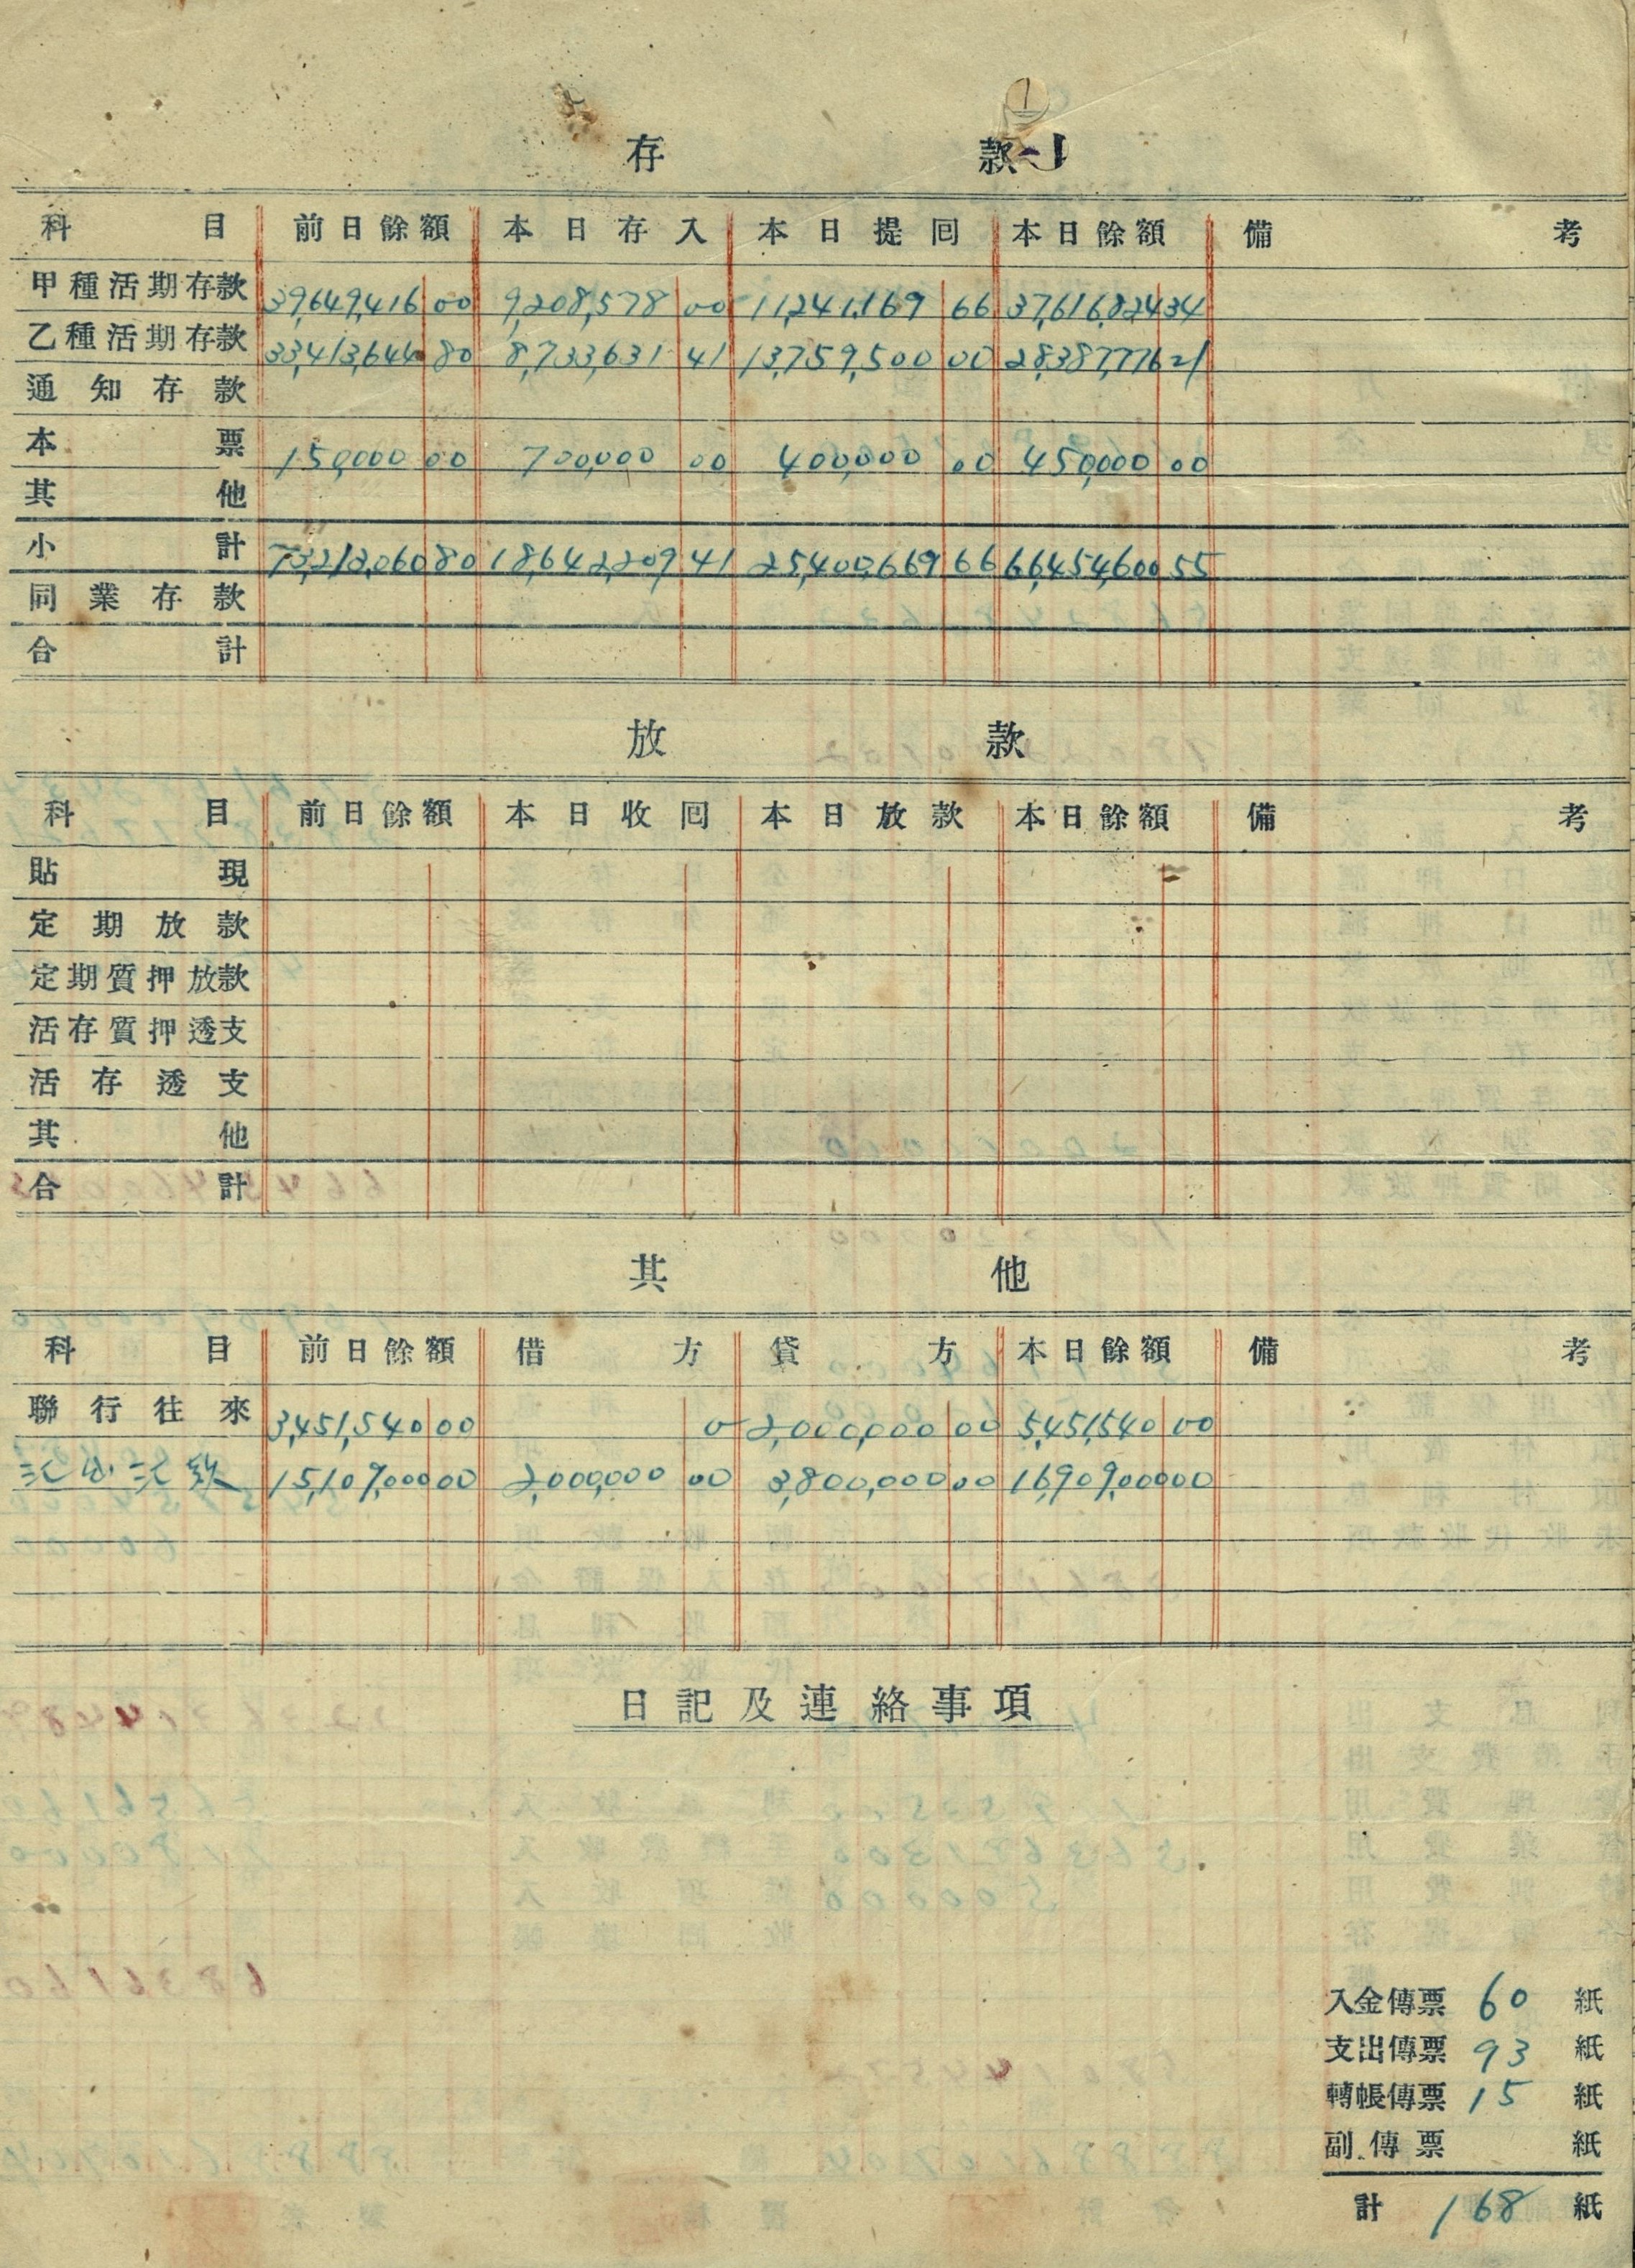 存款
科目 前日餘額 本日存入 本日提回 本日餘額 備考
甲種活期存款 39,649,416 00 9,208,578 00 11,241,169 66 37,616,824 34
乙種活期存款 33,413,644 80 8,733,631 41 13,759,500 00 28,387,776 21
通知存款
本票 150,000 00 700,000 00 400,000 00 450,000 00
其他
小計 73,213,060 80 18,642,209 41 25,400,669 66 66,454,600 55
同業存款
合計
放款
科目 前日餘額 本日收回 本日放款 本日餘額 備考
貼現
定期放款
定期質押放款
活存質押透支
活存透支
其他
合計
其他
科目 前日餘額 借方 貸方 本日餘額 備考
聯行往來 3,451,540 00 0 2,000,000 00 5,451,540 00
汇出汇款 15,109,000 00 2,000,000 00 3,800,000 00 16,909,000 00
日記及連絡事項
入金傳票 60 紙
支出傳票 93 紙
轉帳傳票 15 紙
副傳票 紙
計 168 紙